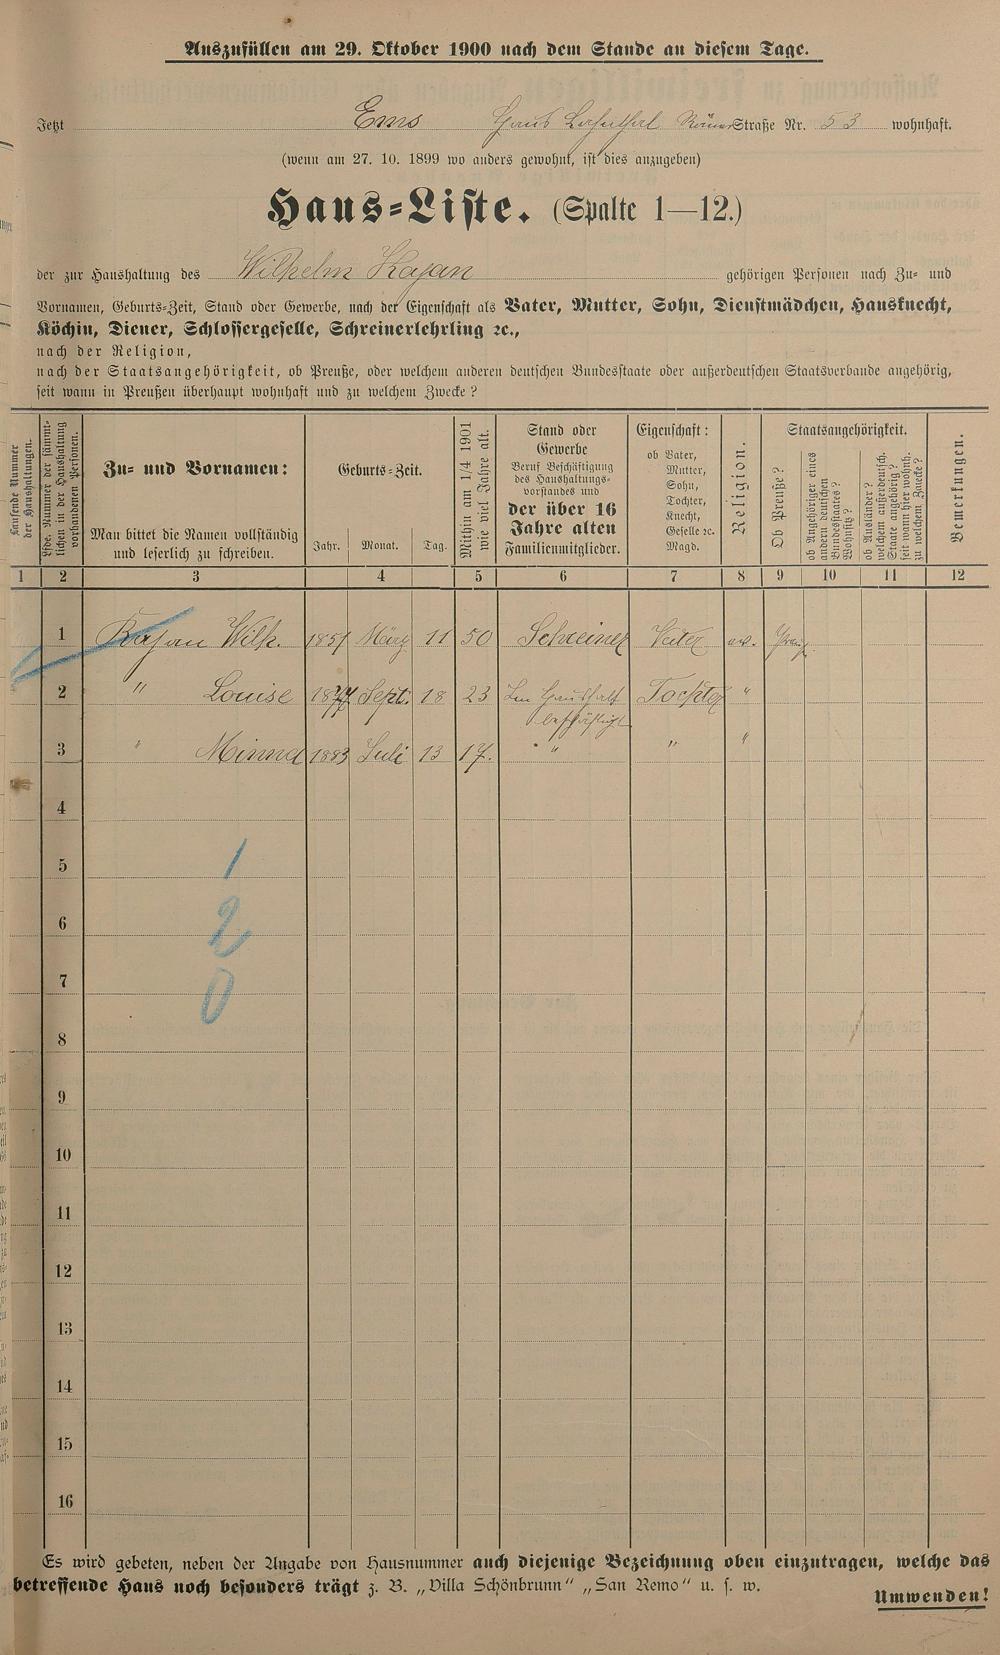 Auszufüllen am 29. Oktober 1900 nach dem Stande an diesem Tage.
Jetzt Ems Haus Lahnthal Römer Straße Nr. 53 wohnhaft.
(wenn am 27. 10. 1899 wo anders gewohnt, ist dies anzugeben)
Haus-Liste. (Spalte 1—12.)
der zur Haushaltung des Wilhelm Kajan gehörigen Personen nach Zu- und
Vornamen, Geburts-Zeit, Stand oder Gewerbe, nach der Eigenschaft als Vater, Mutter, Sohn, Dienstmädchen, Hausknecht,
Köchin, Diener, Schlossergeselle, Schreinerlehrling ꝛc.,
nach der Religion,
nach der Staatsangehörigkeit, ob Preuße, oder welchem anderen deutschen Bundesstaate oder außerdeutschen Staatsverbande angehörig,
seit wann in Preußen überhaupt wohnhaft und zu welchem Zwecke?
Laufende Nummer
der Haushaltungen.
Lfde. Nummer der sämmt-
lichen in der Haushaltung
vorhandenen Personen.
Zu- und Vornamen:
Man bittet die Namen vollständig
und leserlich zu schreiben.
Geburts-Zeit.
Jahr. Monat. Tag.
Mithin am 1/4 1901
wie viel Jahre alt.
Stand oder
Gewerbe
Beruf Beschäftigung
des Haushaltungs-
vorstandes und
der über 16
Jahre alten
Familienmitglieder.
Eigenschaft:
ob Vater,
Mutter,
Sohn,
Tochter,
Knecht,
Geselle ꝛc.
Magd.
Religion.
Staatsangehörigkeit.
Ob Preuße?
ob Angehöriger eines
andern deutschen
Bundesstaates?
Wohnsitz?
ob Ausländer?
welchem außerdeutsch.
Staate angehörig?
seit wann hier wohnh.
zu welchem Zwecke?
Bemerkungen.
1 2 3 4 5 6 7 8 9 10 11 12
1 Kajan Wilh. 1851 März 11 50 Schreiner Vater ev. Preuß.
2 " Louise 1877 Sept. 18 23 Im Haushalt Tochter "
beschäftigt
3 " Minna 1883 Juli 13 17. " " "
4
5
1
6
2
7
0
8
9
10
11
12
13
14
15
16
Es wird gebeten, neben der Angabe von Hausnummer auch diejenige Bezeichnung oben einzutragen, welche das
betreffende Haus noch besonders trägt z. B. „Villa Schönbrunn“ „San Remo“ u. s. w.
Umwenden!